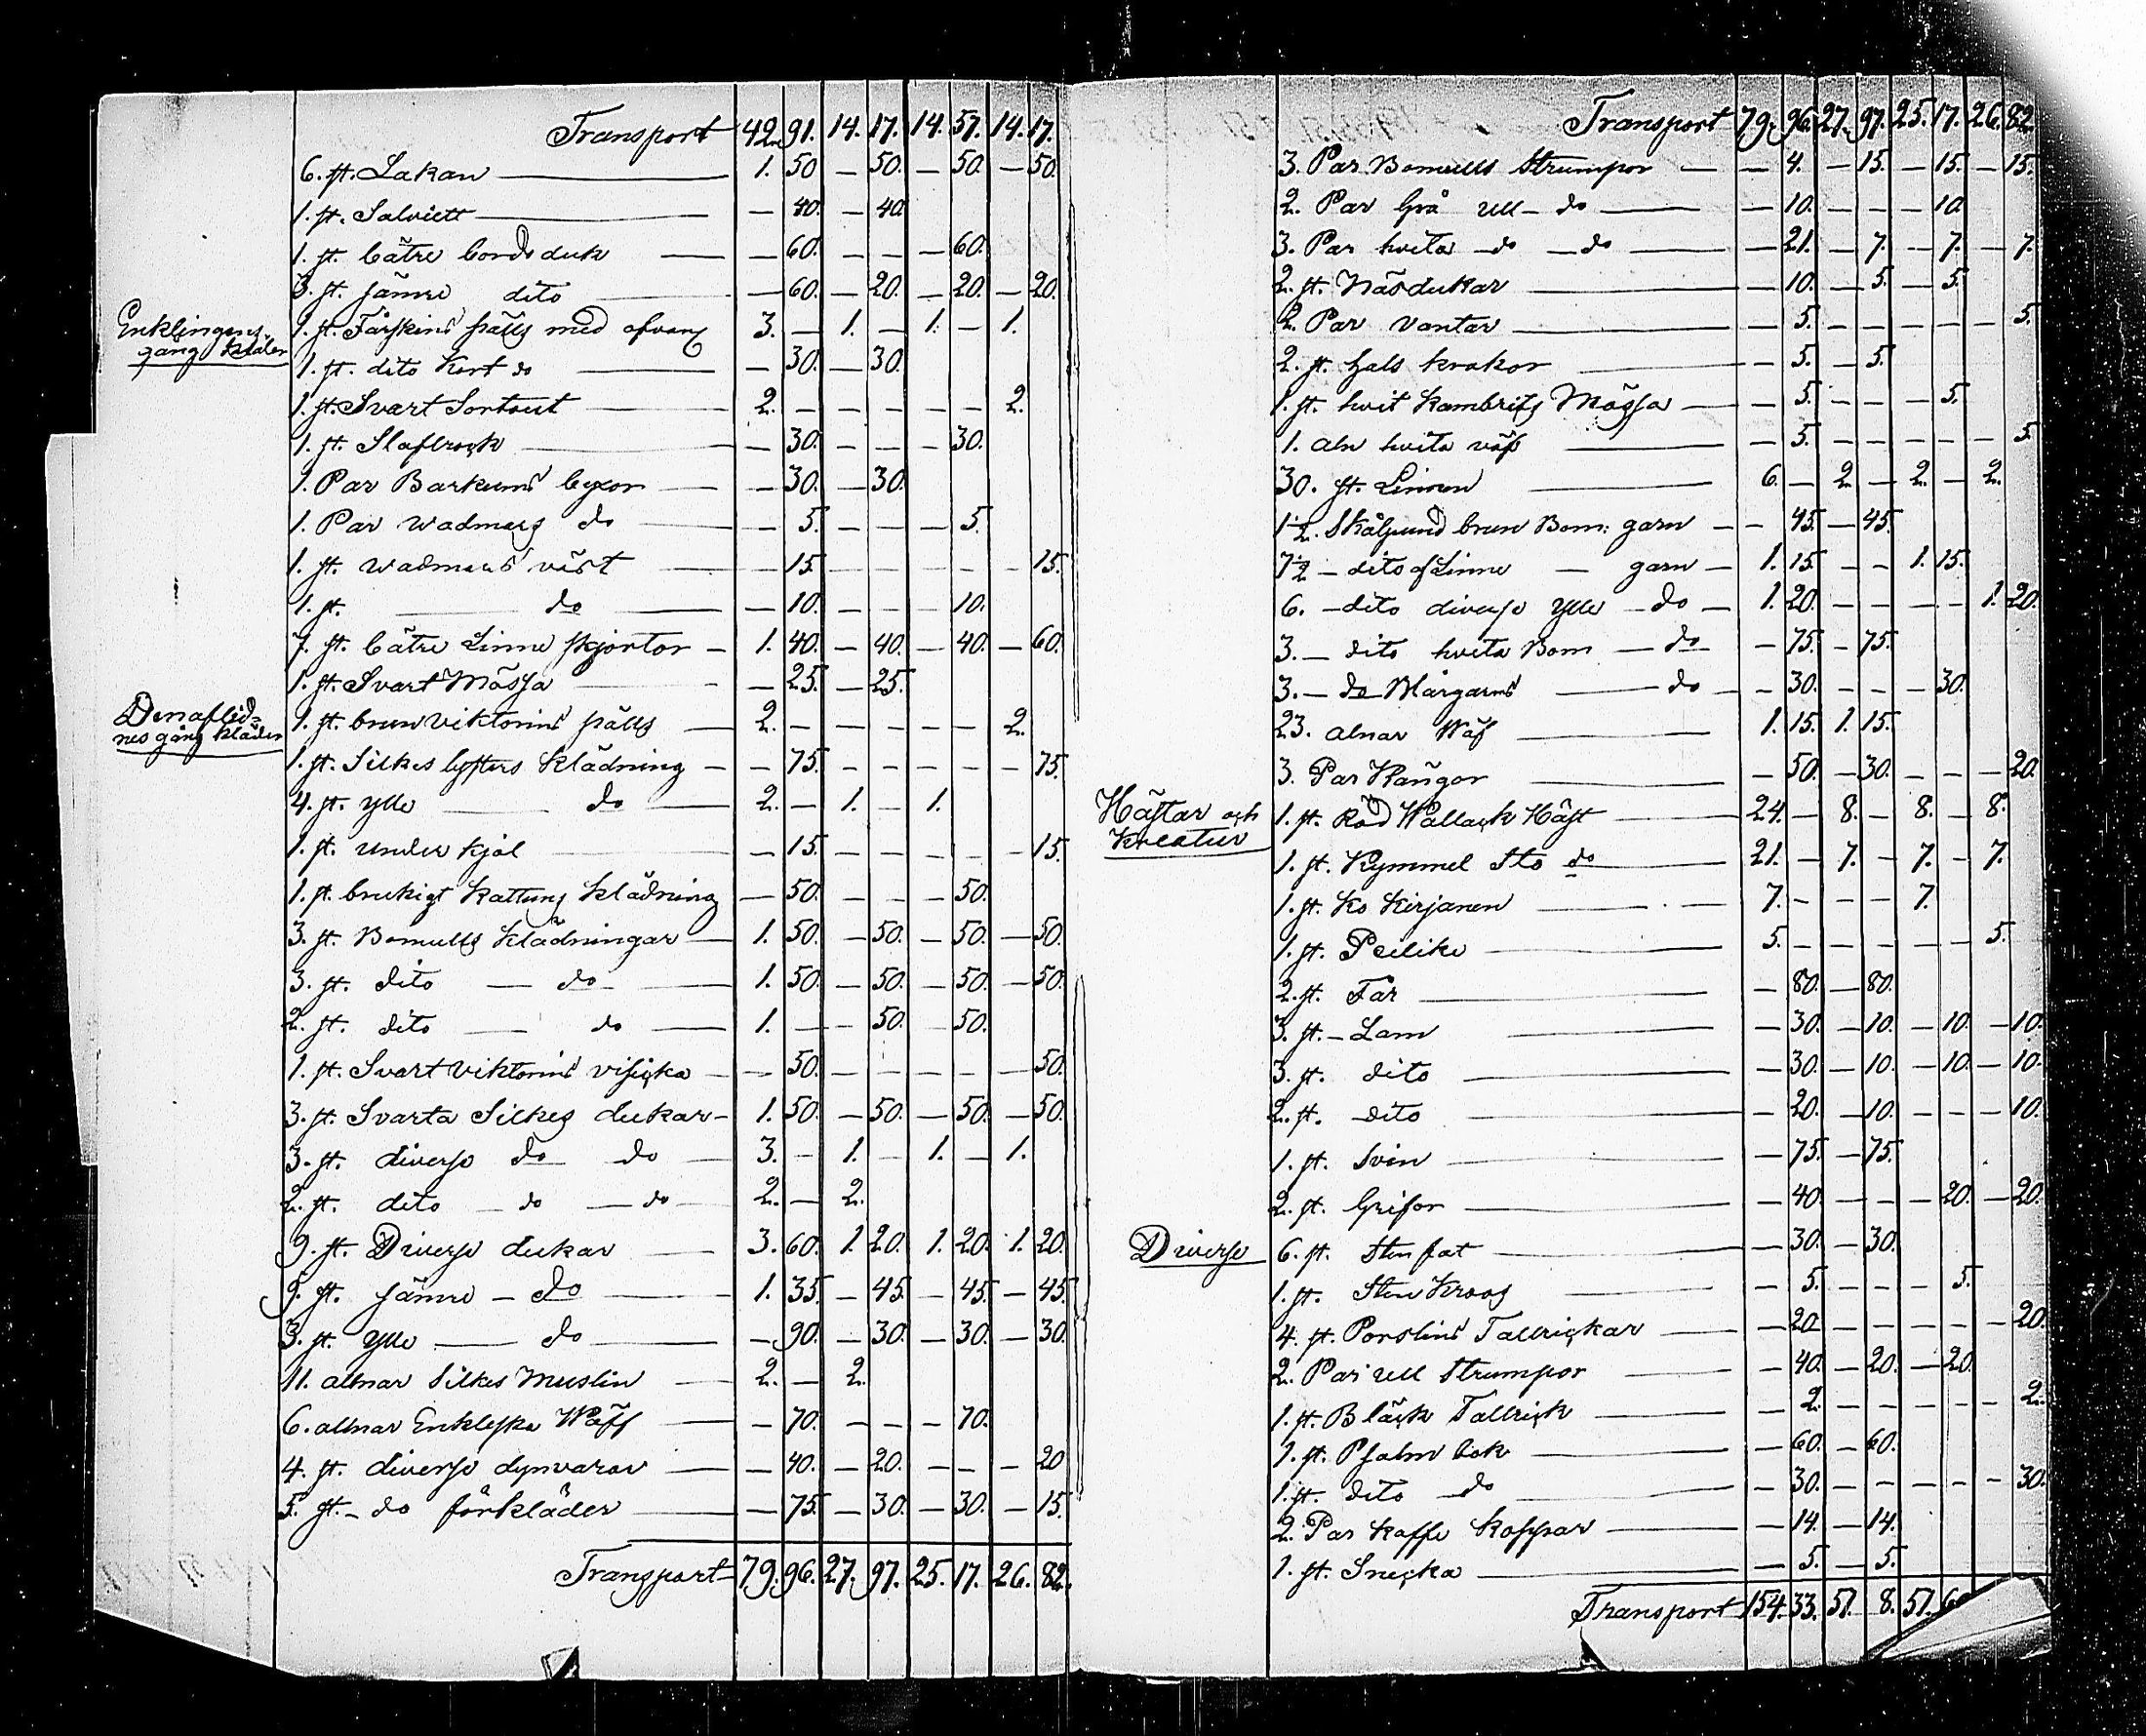 Transport 42. 91. 14. 17. 14. 57. 14. 17.
6. st. Lakan — 1. 50 — 50. — 50. — 50.
1. st. Salviett — — 40. — 40.
1. st. bätre bords duk — — 60. — — — 60.
3. st. sämre dito — 60. — 20. — 20. — 20.
Enklingens
gång kläder
1. st. Fårskins pälls med 3. — 1. — 1. — 1.
1. st. dito kort do — — 30. — 30.
1. st. Svart Sortout — 2. — — — — — 2.
1. st. Slafrock — — 30. — — — 30.
1. Par Barkums byxor — — 30. — 30.
1. Par wadmags do — — 5. — — — 5.
1. st. wadmans väst — — 15. — — — — — 15.
1. st. — do — — 10. — — — 10.
7. st. bätre Linne skjortor — 1. 40. — 40. — 40. — 60.
1. st. Svart Mössa — — 25. — 25.
Den aflid-
nes gång kläder
1. st. brun viktorins pälls — 2. — — — — — 2.
1. st. Silkes lysters klädning — — 75. — — — — — 75.
4. st. ylle — do — 2. — 1. — 1.
1. st. under kjol — 15. — — — — — 15.
1. st. brukigt kattuns klädning — 50. — — — 50.
3. st. Bomulls klädningar — 1. 50. — 50. — 50. — 50.
3. st. dito — do — 1. 50. — 50. — 50. — 50.
2. st. dito — do — 1. — — 50. — 50.
1. st. Svart viktorins — — 50. — — — — — 50.
3. st. Svarta Silkes dukar — 1. 50. — 50. — 50. — 50.
3. st. diverse do do — 3. — 1. — 1. — 1.
2. st. dito — do — do — 2. — 2.
9. st. Diverse dukar — 3. 60. 1. 20. 1. 20. 1. 20.
9. st. sämre — do — 1. 35. — 45. — 45. — 45.
3. st. ylle — do — — 90. — 30. — 30. — 30.
11. allnar Silkes Muslin — 2. — 2.
6. allnar Wäff — — 70. — — — 70.
4. st. diverse dynvarar — — 40. — 20. — — — 20
5. st. — do förkläder — — 75. — 30. — 30. — 15.
Transport 79. 96. 27. 97. 25. 17. 26. 82.
Transport 79. 96. 27. 97. 25. 17. 26. 82.
3. Par Bomulls Strumpor — — 4. — 15. — 15. — 15.
2. Par Grå ull — do — — 10. — — — 10.
3. Par hvita — do — do — — 21. — 7. — 7. — 7.
2. st. Näsdukar — — 10. — 5. — 5.
2. Par vantar — — 5. — — — — — 5.
2. st. hals krakor — — 5. — 5.
1. st. hvit Kambrits Mössa — — 5. — — — 5.
1. aln hvita väf — — 5. — — — — — 5.
30. st. Linnen — 6. — 2. — 2. — 2.
1½. Skålpund brun Bom: garn — — 45. — 45.
7½ — dito af Linne — garn — 1. 15. — — 1. 15.
6. — dito diverse ylle — do — 1. 20. — — — — 1. 20.
3. — dito hvita Bom — do — 75. — 75.
3. — do Blårgarns — do — — 30. — — — 30.
23. alnar Wäf — 1. 15. 1. 15.
3. Par Kängor — — 50. — 30. — — — 20.
Hästar och
Kreatur
1. st. Röd Wallack Häst — 24. — 8. — 8. — 8.
1. st. Kymmel Sto do — 21. — 7. — 7. — 7.
1. st. Ko Kirjanen — 7. — — — 7.
1. st. Peilike — 5. — — — — — 5.
2. st. Får — — 80. — 80.
3. st. — Lam — 30. — 10. — 10. — 10.
3. st. dito — — 30. — 10. — 10. — 10.
2. st. dito — — 20. — 10. — — — 10.
1. st. Svin — — 75. — 75.
2. st. Grisar — — 40. — — — 20. — 20.
Diverse
6. st. Sten fat — — 30. — 30.
1. st. Sten Kroos — 5. — — — 5.
4. st. Porslins Tallrickar — — 20 — — — — — 20.
2. Par ull Strumpor — — 40. — 20. — 20.
1. st. Bläck Tallrick — — 2. — — — — — 2.
1. st. Psalm bok — — 60. — 60.
1. st. dito — do — — 30. — — — — — 30.
2. Par kaffe koppar — — 14. — 14.
1. st. Snecka — — 5. — 5.
Transport 154. 33. 57. 8. 57.